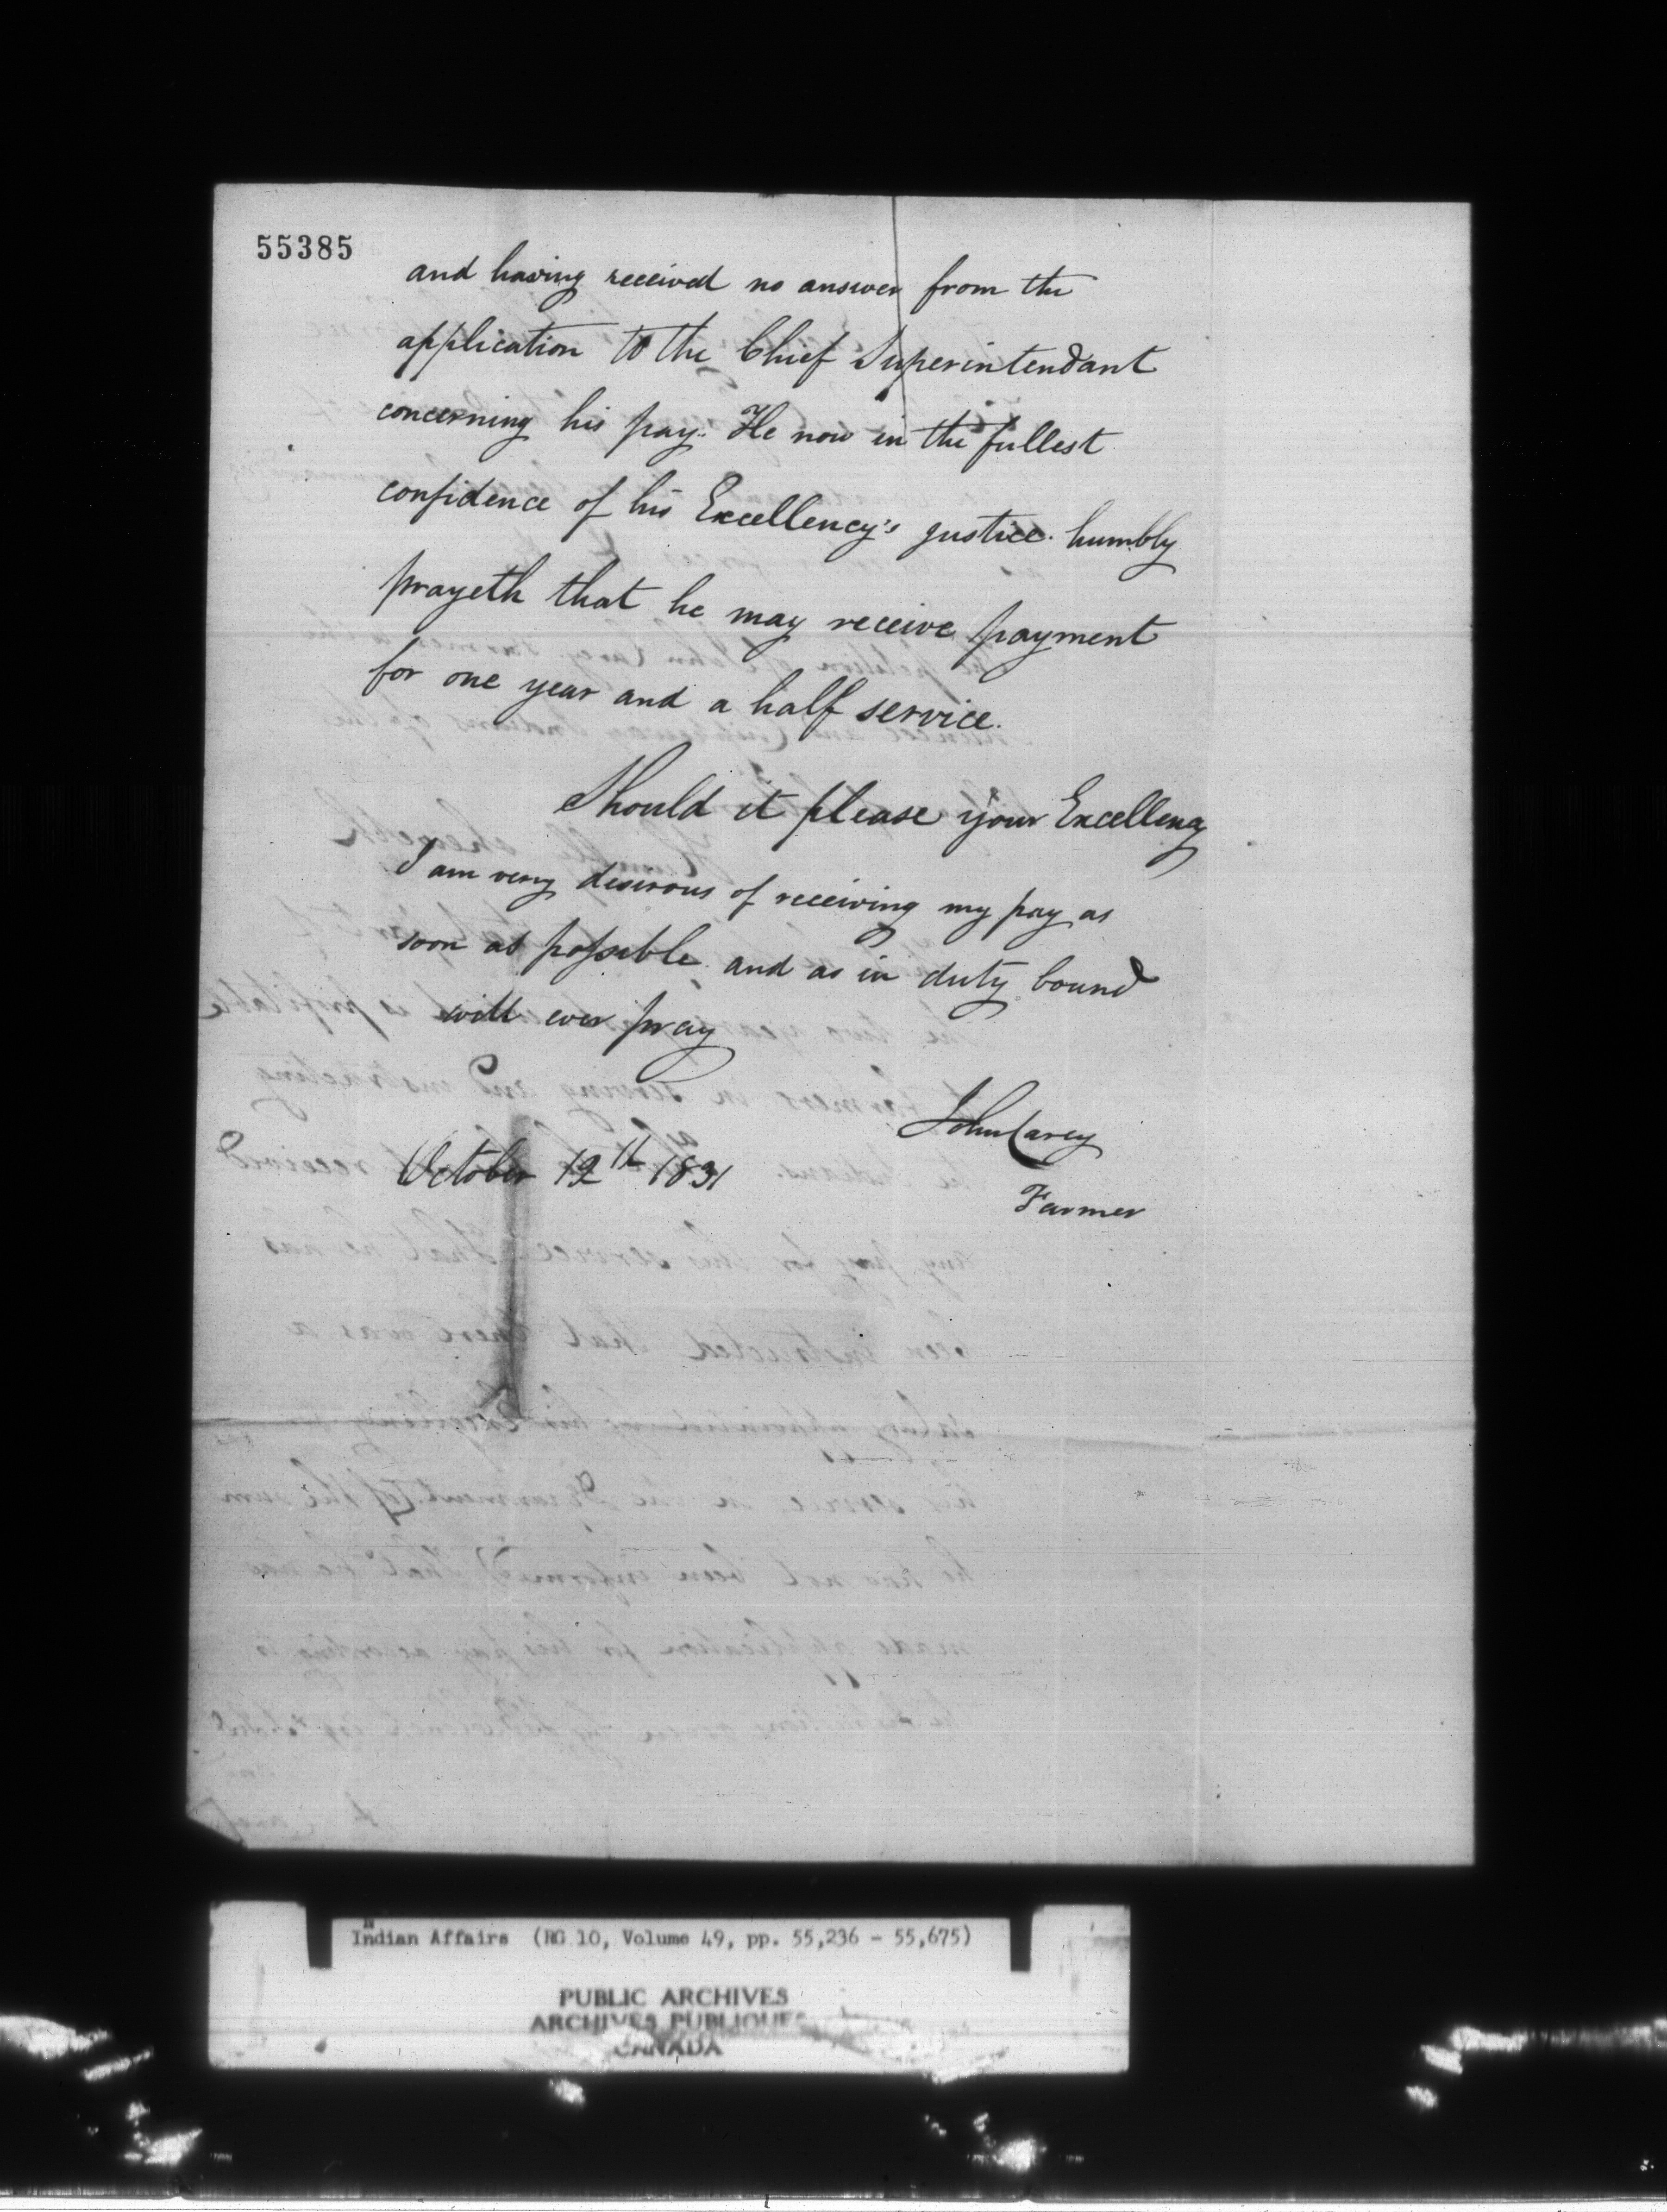 55385
and having received no answer from the
application to the Chief Superintendant
concerning his pay. He now in the fullest
confidence of his Excellency's justice humbly
prayeth that he may receive payment
for one year and a half service.
Should it please your Excellency
I am very desirous of receiving my pay as
soon as possible and as in duty bound
will ever pray
John Carey
October 12th 1831
Farmer
Indian Affairs (RG 10, Volume 49, pp. 55,236 - 55,675)
PUBLIC ARCHIVES
ARCHIVES PUBLIQUES
CANADA